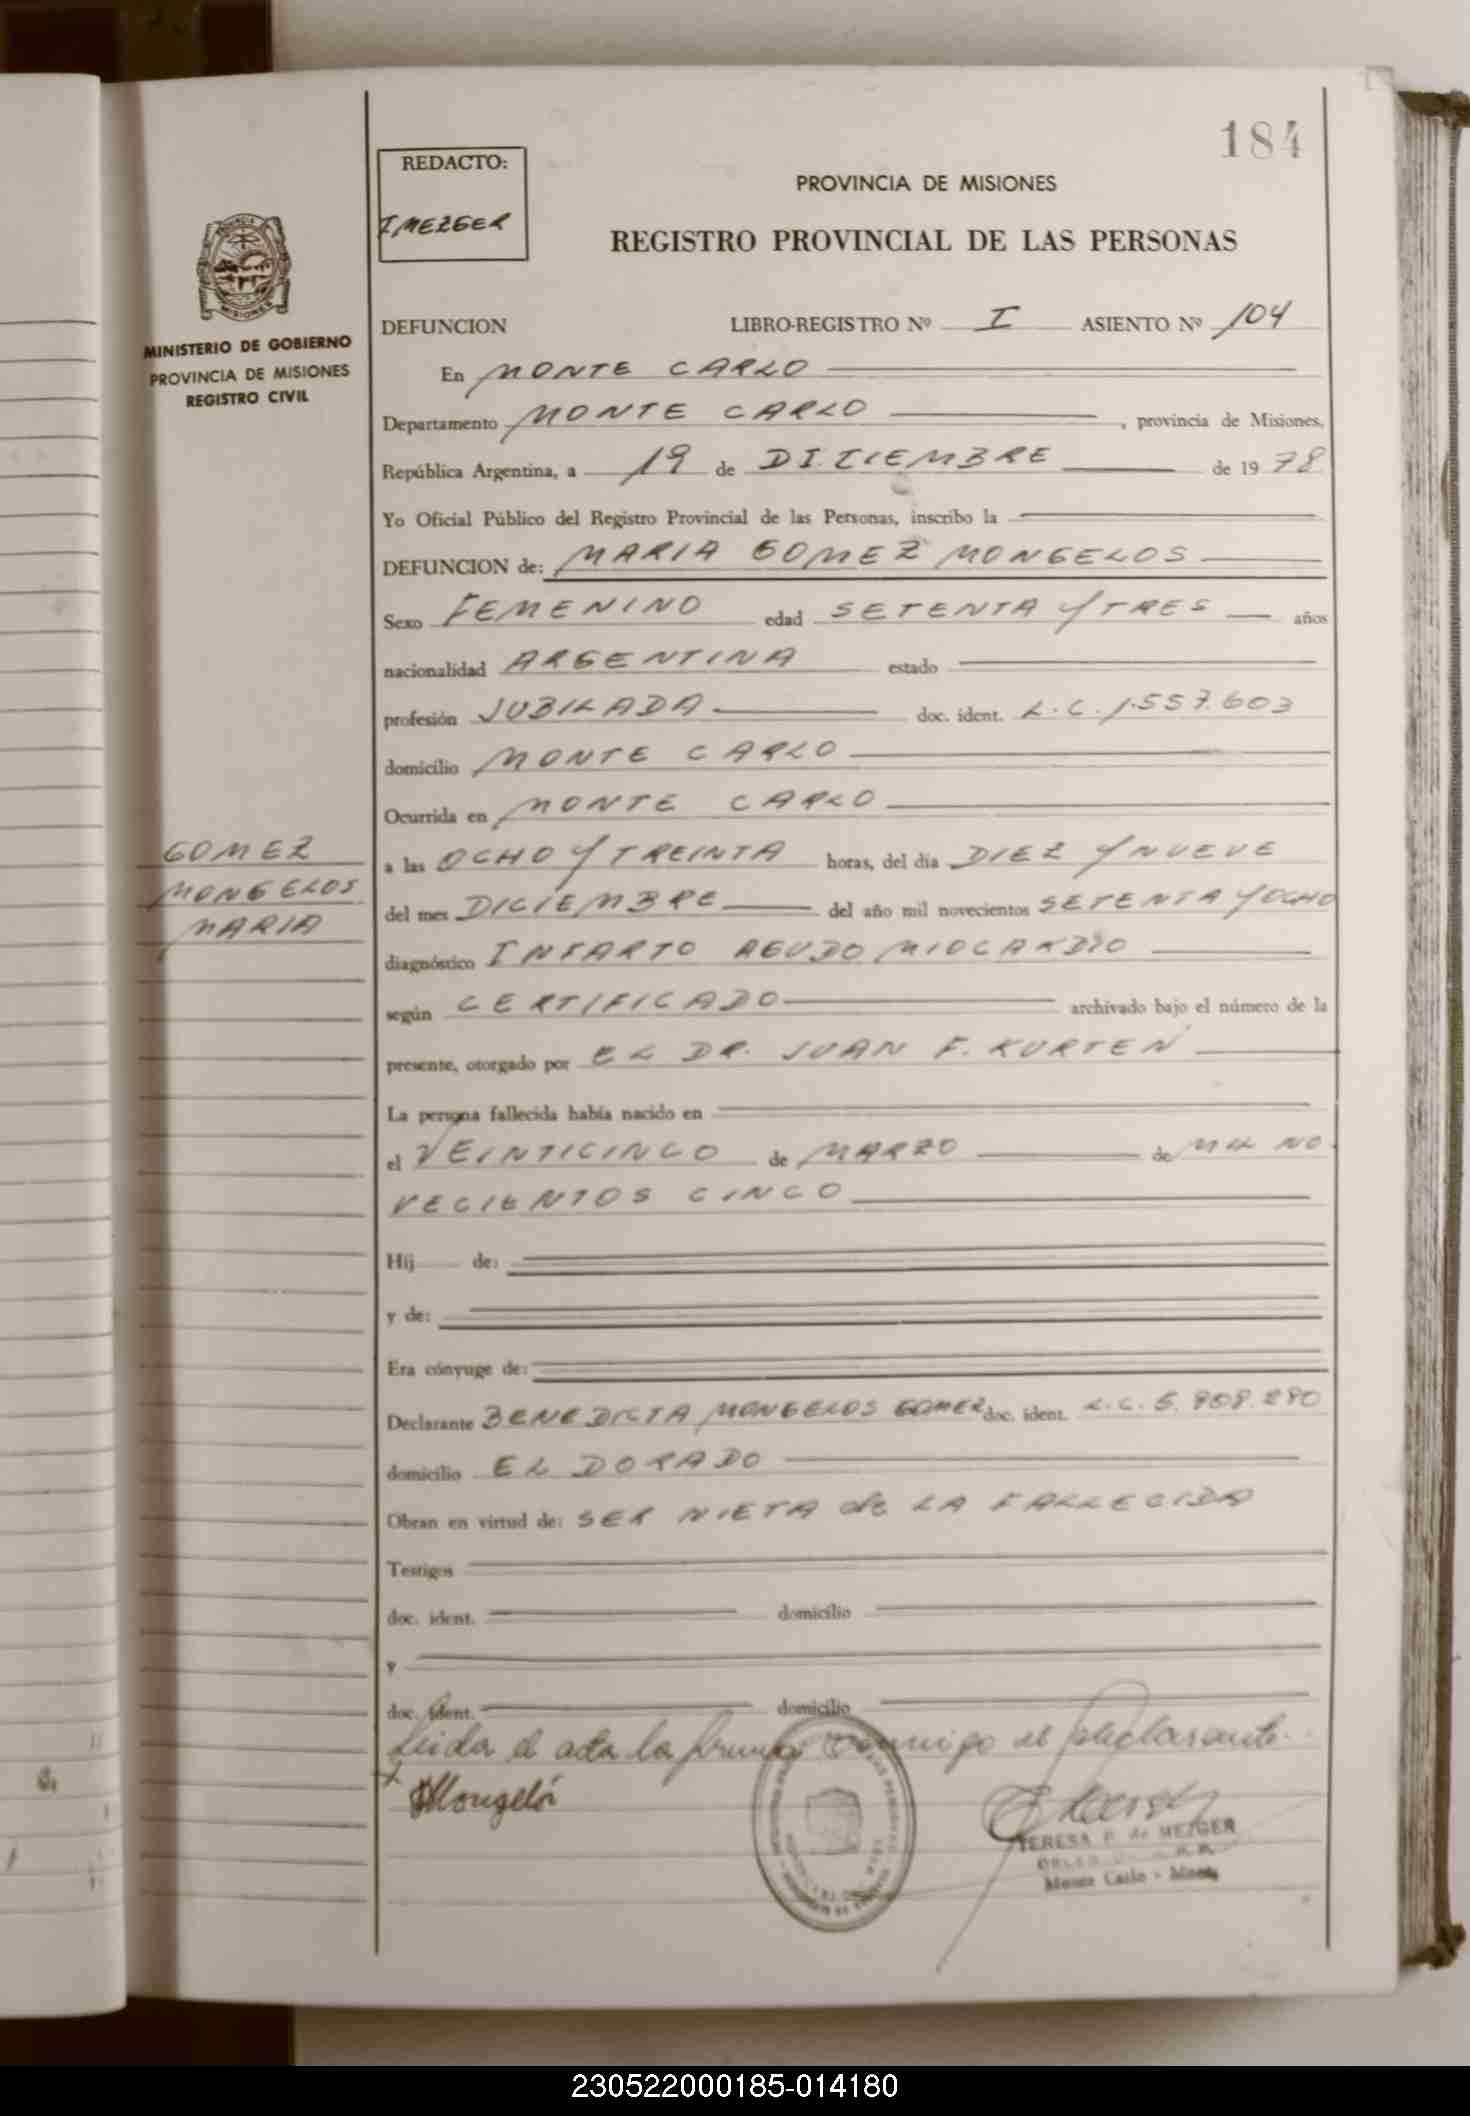 184
REDACTO:
T MEZGER
PROVINCIA DE MISIONES
REGISTRO PROVINCIAL DE LAS PERSONAS
MINISTERIO DE GOBIERNO
PROVINCIA DE MISIONES
REGISTRO CIVIL
DEFUNCION LIBRO-REGISTRO Nº I ASIENTO Nº 104
En MONTE CARLO
Departamento MONTE CARLO , provincia de Misiones,
República Argentina, a 19 de DICIEMBRE de 1978
Yo Oficial Público del Registro Provincial de las Personas, inscribo la
DEFUNCION de: MARIA GOMEZ MONGELOS
Sexo FEMENINO edad SETENTA Y TRES años
nacionalidad ARGENTINA estado
profesión JUBILADA doc. ident. L.C. 1.557.603
domicilio MONTE CARLO
Ocurrida en MONTE CARLO
GOMEZ
MONGELOS
MARIA
a las OCHO Y TREINTA horas, del día DIEZ Y NUEVE
del mes DICIEMBRE del año mil novecientos SETENTA Y OCHO
diagnóstico INFARTO AGUDO MIOCARDIO
según CERTIFICADO archivado bajo el número de la
presente, otorgado por EL DR. JUAN F. KURTEN
La persona fallecida había nacido en
el VEINTICINCO de MARZO de MIL NO
VECIENTOS CINCO
Hij de:
y de:
Era cónyuge de:
Declarante BENEDICTA MONGELOS GOMEZ doc. ident. L.C. 5.908.290
domicilio EL DORADO
Obran en virtud de: SER NIETA de LA FALLECIDA
Testigos
doc. ident. domicilio
y
doc. ident. domicilio
Leida el acta la firma conmigo el declarante
Mongelós
TERESA P. de MEZGER
Monte Carlo - Mnes.
230522000185-014180